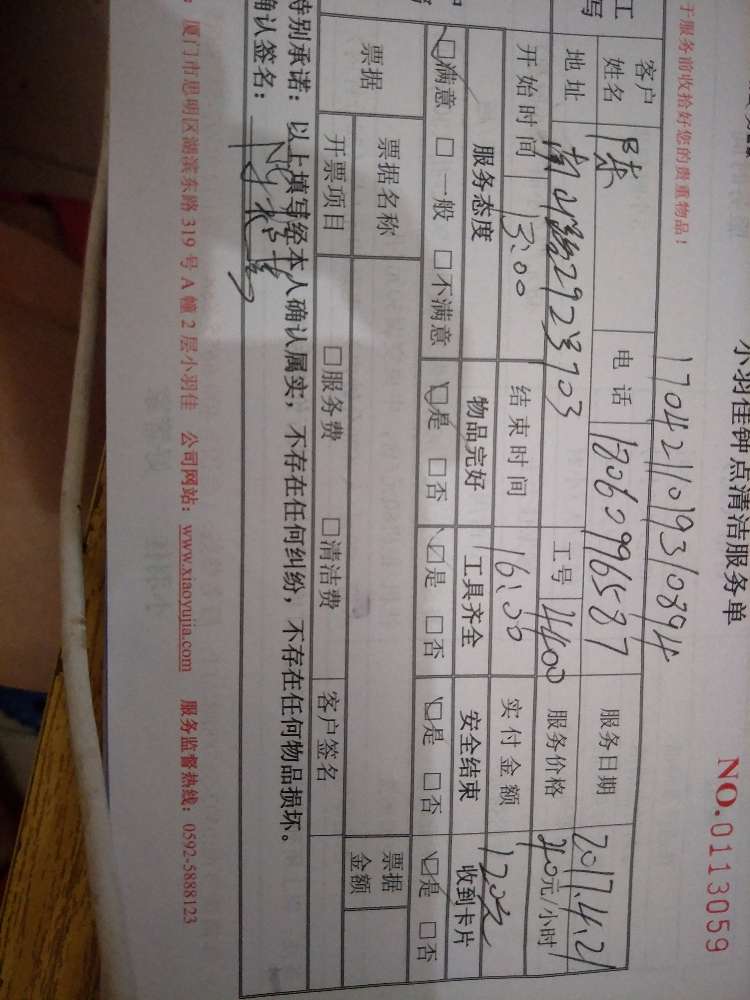 小羽佳钟点清洁服务单
NO.0113059
1704211019310894
于服务前收拾好您的贵重物品!
工
写
客户姓名 陈 电话 18060996587 服务日期 2017.4.21
地址 南山路292号703 工号 4400 服务价格 40元/小时
开始时间 13:00 结束时间 16:00 实付金额 120元
服务态度 物品完好 工具齐全 安全结束 收到卡片
☑满意 □一般 □不满意 ☑是 □否 ☑是 □否 ☑是 □否 ☑是 □否
票据 票据名称 票据金额
开票项目 □服务费 □清洁费 客户签名
特别承诺:以上填写经本人确认属实,不存在任何纠纷,不存在任何物品损坏。
确认签名:
:厦门市思明区湖滨东路 319 号 A 幢 2 层小羽佳 公司网站:www.xiaoyujia.com 服务监督热线:0592-5888123